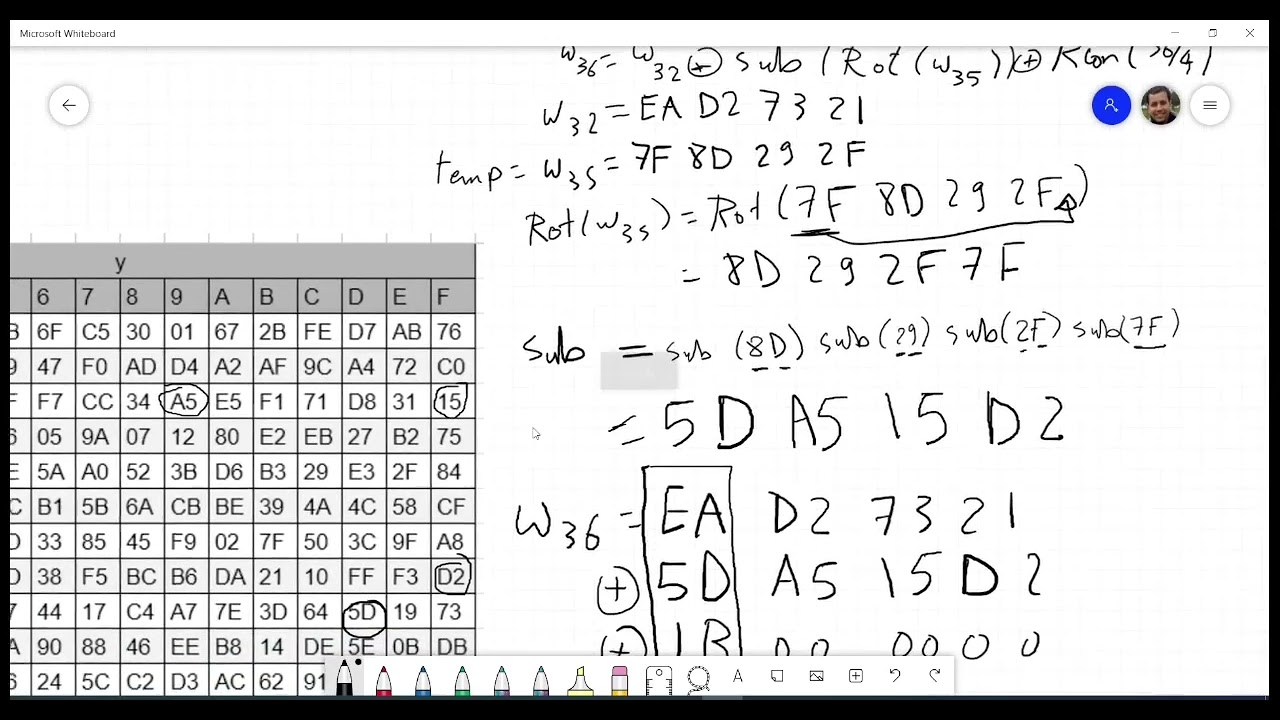 Microsoft Whiteboard
w36 = w32 ⊕ sub (Rot(w35)) ⊕ Rcon(36/4)
w32 = EA D2 73 21
temp = w35 = 7F 8D 29 2F
Rot(w35) = Rot(7F 8D 29 2F)
= 8D 29 2F 7F
sub = sub (8D) sub(29) sub(2F) sub(7F)
= 5D A5 15 D2
w36 = EA D2 73 21
⊕ 5D A5 15 D2
⊕ 1B 00 00 00
y
6 7 8 9 A B C D E F
6F C5 30 01 67 2B FE D7 AB 76
47 F0 AD D4 A2 AF 9C A4 72 C0
F7 CC 34 A5 E5 F1 71 D8 31 15
05 9A 07 12 80 E2 EB 27 B2 75
5A A0 52 3B D6 B3 29 E3 2F 84
B1 5B 6A CB BE 39 4A 4C 58 CF
33 85 45 F9 02 7F 50 3C 9F A8
38 F5 BC B6 DA 21 10 FF F3 D2
44 17 C4 A7 7E 3D 64 5D 19 73
90 88 46 EE B8 14 DE 5E 0B DB
24 5C C2 D3 AC 62 91